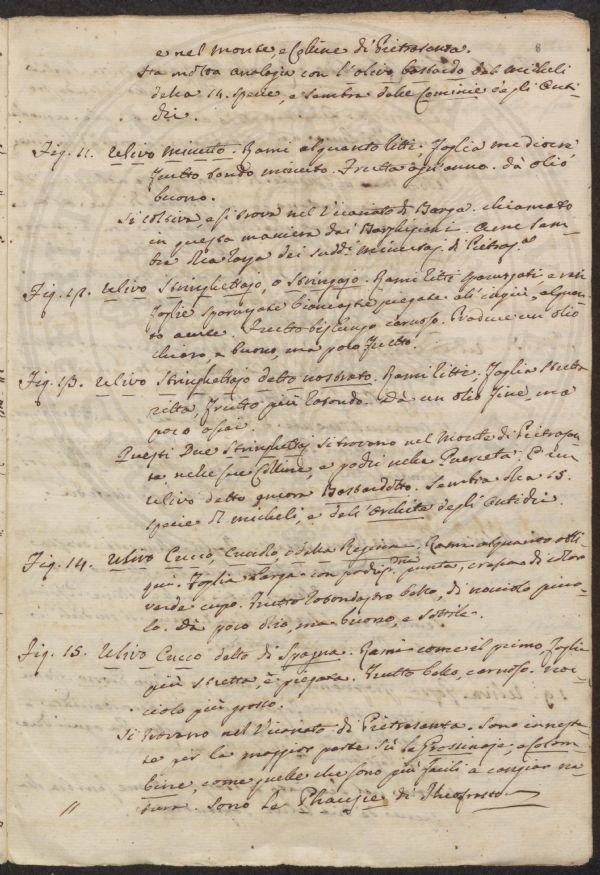 8
e nel monte e Colline di Pietrasanta.
Ha molta analogia con l'olivo bastardo del Micheli
della 14. specie, e sembra delle Cominie degli Anti-
chi.
Fig. 11. Ulivo minuto. Rami alquanto fitti. Foglia mediocre
Frutto tondo minuto. Frutta ogn'anno. dà olio
buono.
Si coltiva, e si trova nel Vicariato di Barga. chiamato
in questa maniera dai Barghigiani.
dei sudd. di Pietras.ta
Fig. 12. Ulivo Stringhettajo, o Stringajo. Rami fitti e
Foglie piegate all'ingiù, alquan-
to acute. Frutto bislungo carnoso. Produce un olio
chiaro, e buono, ma poco frutto.
Fig. 13. Ulivo Stringhettajo detto nostrato. Rami fitti, Foglia stretta
ritta, Frutto più rotondo. dà un olio fine, ma
poco assai.
Questi due Stringhettaj si trovano nel Monte di Pietrasan-
ta, nelle sue Colline, e pochi nella Querceta. È un
ulivo detto ancora Bastardotto. Sembra della 15.
specie di Micheli, e dell'Orchita degli Antichi.
Fig. 14. Ulivo Cucco, Cucclo, o della Regina. Rami alquanto obli-
qui. Foglia larga con punta, crespa di colore
verde cupo. Frutto rotondastro bello, di nocciolo picco-
lo. Dà poco olio, ma buono, e sottile.
Fig. 15. Ulivo Cucco detto di Spagna. Rami come il primo, foglia
più stretta, e piegata. Frutto bello, carnoso. noc-
ciolo più grosso.
Si trovano nel Vicariato di Pietrasanta. Sono innesta-
te per la maggior parte su le Grossinaje, e Colom-
bine, come quelle che sono più facili a cangiar na-
tura. Sono le Phaulie di Theofrasto.
//